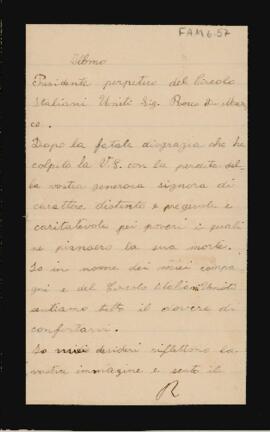 FAM 6.57
Illmo
Presidente perpetuo del Circolo
Italiani Uniti Sig. Rocco De Marc
o.
Dopo la fatale disgrazia che ha
colpito la V.S. con la perdita del-
la vostra generosa signora di
carattere distento e pregevole e
caritatevole pei poveri i quali
ne piansero la sua morte.
Io in nome dei miei compa
gni e del Circolo Italiani Uniti
sentiamo tutto il dovere di
confortarvi.
I miei desideri riflettono la
vostra immagine e sento il
R